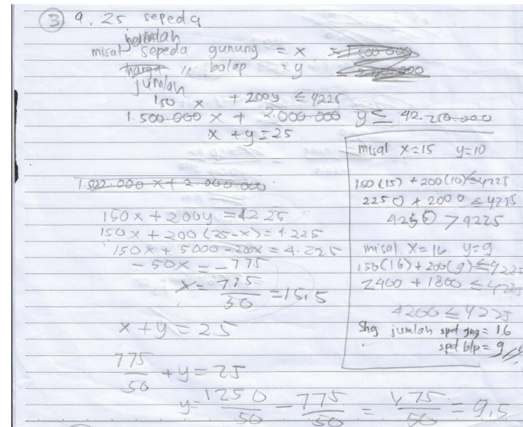 ③ a. 25 sepeda
jumlah
misal sepeda gunung = x
" balap = y
jumlah
150 x + 200y ≤ 4225
1.500.000 x + 2.000.000 y ≤ 42.250.000
x + y = 25
1.500.000 x + 2.000.000
150x + 200y = 4225
150x + 200 (25-x) = 4.225
150x + 5000 - 200x = 4.225
- 50x = - 775
x = 775/50 = 15,5
x + y = 25
775/50 + y = 25
y = 1250/50 - 775/50 = 475/50 = 9,5
misal x=15 y=10
150 (15) + 200 (10) ≤ 4225
2250 + 2000 ≤ 4225
4250 > 4225
misal x=16 y=9
150 (16) + 200 (9) ≤ 4225
2400 + 1800 ≤ 4225
4200 ≤ 4225
Shg jumlah spd gng = 16
spd blp = 9